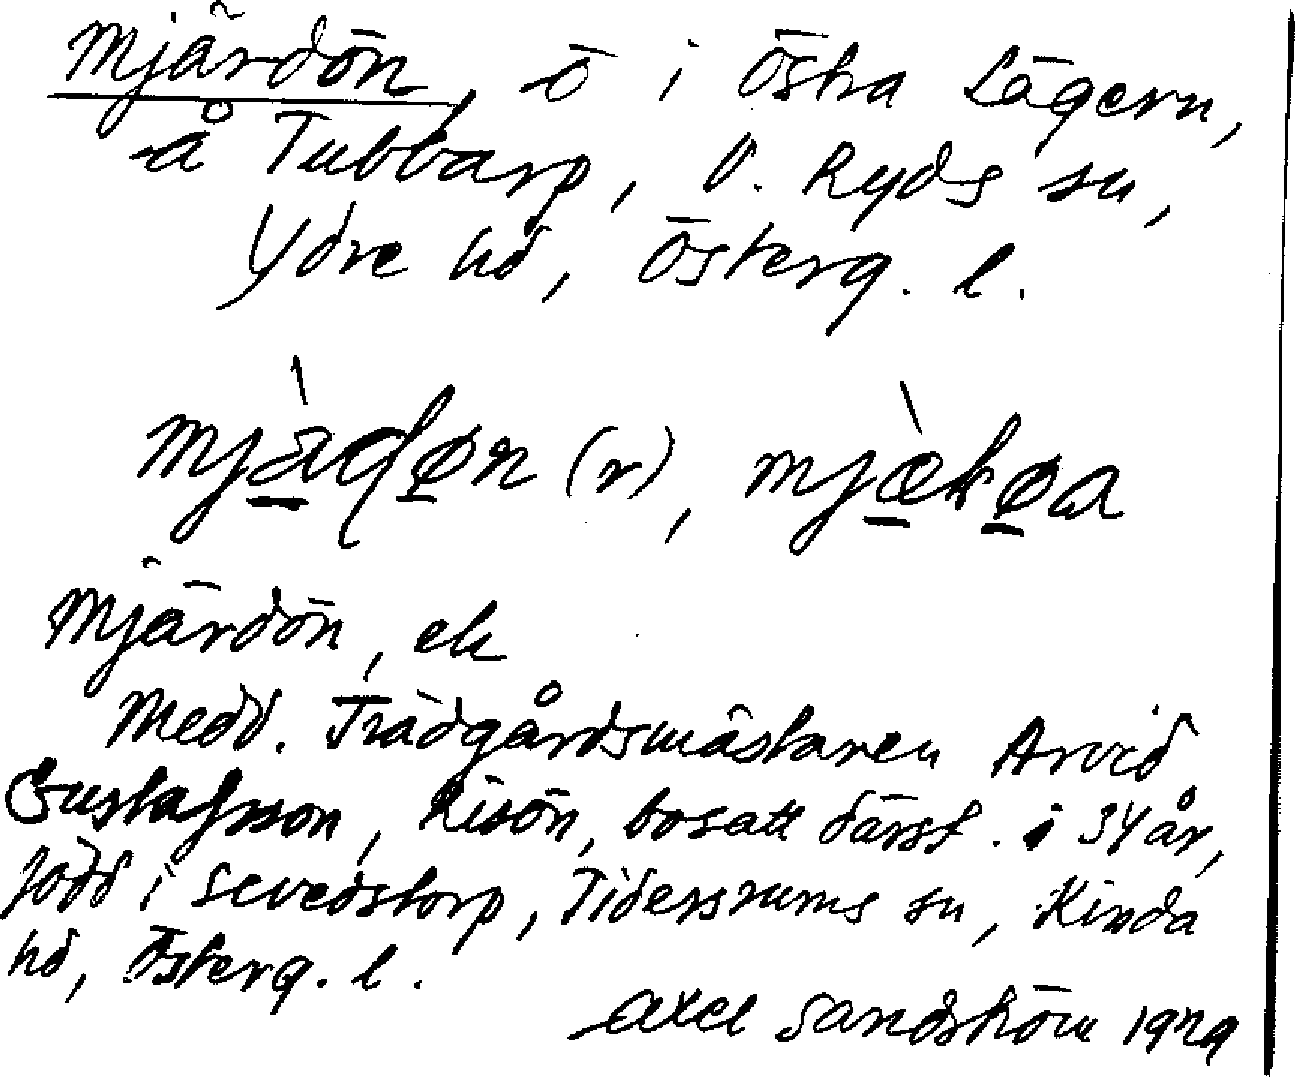 Mjärdön, ö i Östra Lägern,
å Tubbarp, V. Ryds sn,
Ydre hd, Österg. l.
(r),
Mjärdön, ek
Medd. Trädgårdsmästaren Arvid
Gustafsson, Risön, bosatt därst. i 34 år,
född i Sevedstorp, Tidersrums sn, Kinda
hd, Österg. l.
Axel Sandström 1929